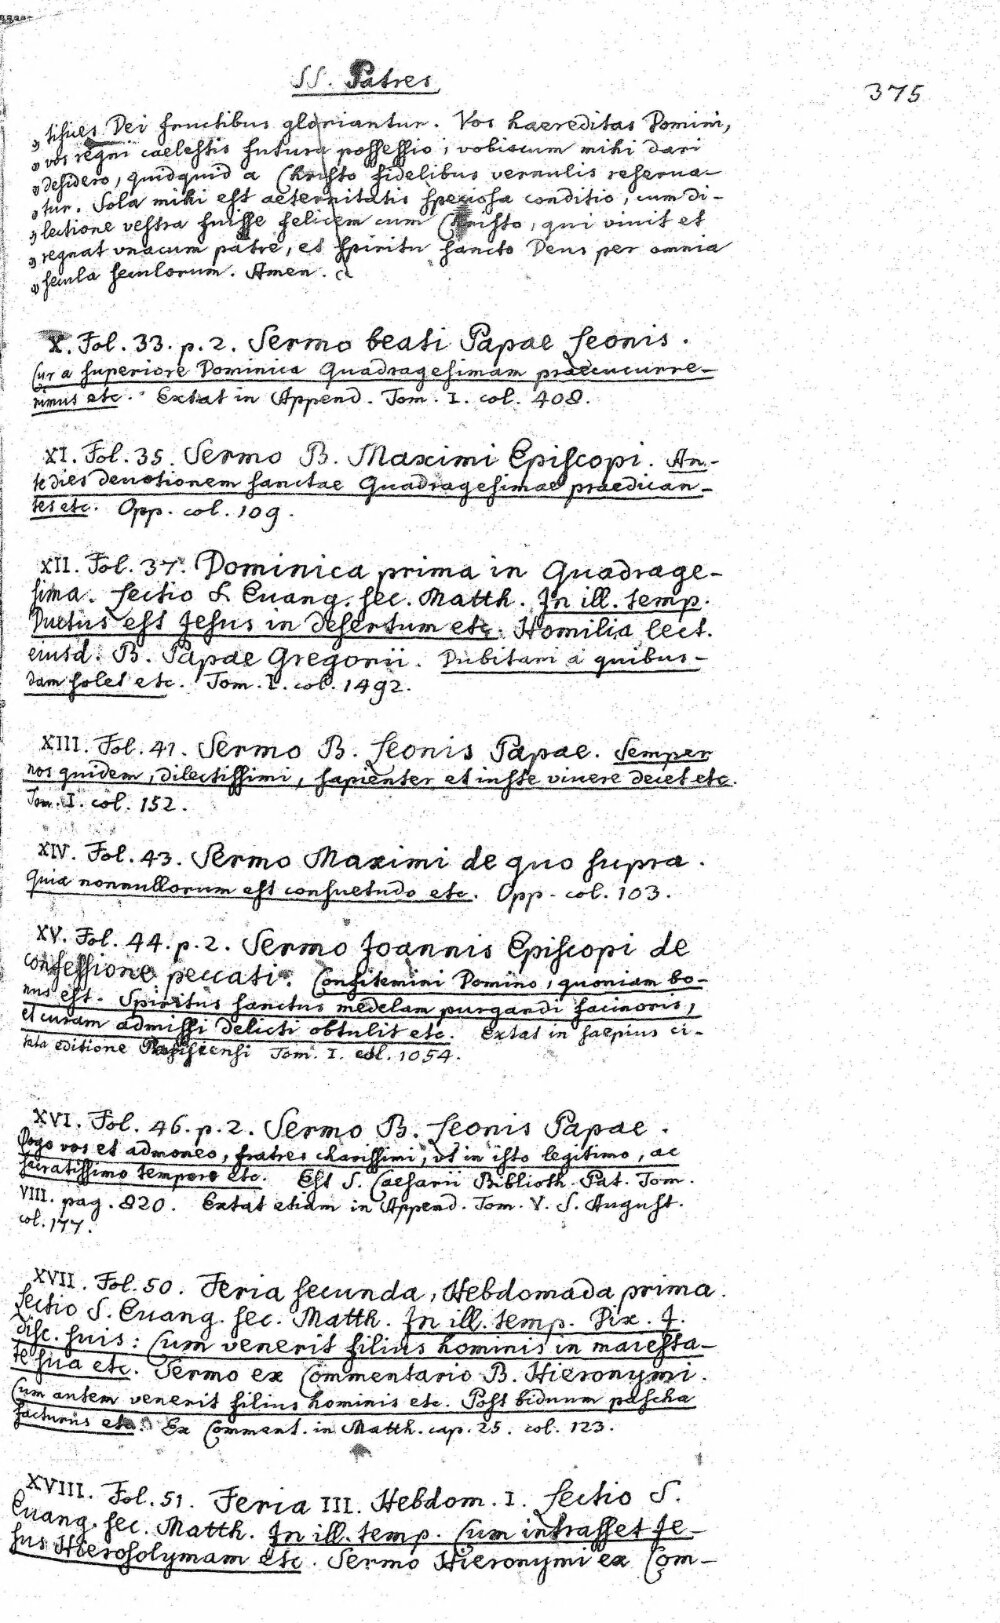 SS. Patres
375
„ tifices Dei fructibus gloriantur. Vos haereditas Domini,
„ vos regni caelestis futura possessio, vobiscum mihi dari
„ desidero, quidquid a Christo fidelibus vernulis reserua-
„ tur. Sola mihi est aeternitatis speciosa conditio, cum di-
„ lectione vestra fuisse felicem cum Christo, qui viuit et
„ regnat vnacum patre, et spiritu sancto Deus per omnia
„ secula seculorum. Amen.
X. Fol. 33. p. 2. Sermo beati Papae Leonis.
Cur a superiore Dominica Quadragesimam praecucurre-
rimus etc. Extat in Append. Tom. I. col. 408.
XI. Fol. 35. Sermo B. Maximi Episcopi. An-
te dies deuotionem sanctae Quadragesimae praedican-
tes etc. Opp. col. 109.
XII. Fol. 37. Dominica prima in Quadrage-
sima. Lectio S. Euang. sec. Matth. In ill. temp.
Ductus est Jesus in desertum etc. Homilia lect.
eiusd. B. Papae Gregorii. Dubitari a quibus-
dam solet etc. Tom. I. col. 1492.
XIII. Fol. 41. Sermo B. Leonis Papae. Semper
nos quidem, dilectissimi, sapienter et iuste viuere decet etc.
Tom. I. col. 152.
XIV. Fol. 43. Sermo Maximi de quo supra.
Quia nonnullorum est consuetudo etc. Opp. col. 103.
XV. Fol. 44. p. 2. Sermo Joannis Episcopi de
confessione peccati. Confitemini Domino, quoniam bo-
nus est. Spiritus sanctus medelam purgandi facinoris,
et curam admissi delicti obtulit etc. Extat in saepius ci-
tata editione Parisiensi Tom. I. col. 1054.
XVI. Fol. 46. p. 2. Sermo B. Leonis Papae.
Rogo vos et admoneo, fratres charissimi, vt in isto legitimo, ac
sacratissimo tempore etc. Est S. Caesarii Biblioth. Pat. Tom.
VIII. pag. 820. Extat etiam in Append. Tom. V. S. August.
col. 177.
XVII. Fol. 50. Feria secunda, Hebdomada prima.
Lectio S. Euang. sec. Matth. In ill. temp. Dix. J.
disc. suis: Cum venerit filius hominis in maiesta-
te sua etc. Sermo ex Commentario B. Hieronymi.
Cum autem venerit filius hominis etc. Post biduum pascha
facturus etc. Ex Comment. in Matth. cap. 25. col. 123.
XVIII. Fol. 51. Feria III. Hebdom. I. Lectio S.
Euang. sec. Matth. In ill. temp. Cum intrasset Je-
sus Hierosolymam etc. Sermo Hieronymi ex Com-